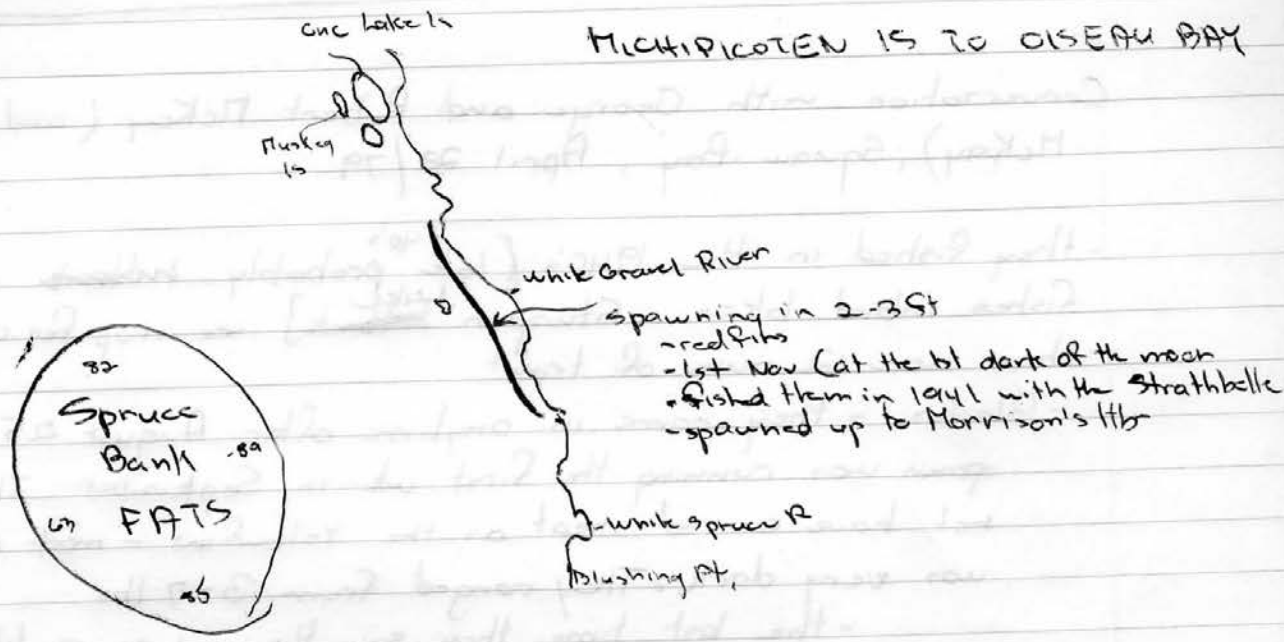 MICHIPICOTEN IS TO OISEAU BAY
Lake Is
Is
White Gravel River
spawning in 2-3 ft
- redfins
- 1st Nov (at the 1st dark of the moon
- fished them in 1941 with the Strathbelle
- spawned up to Morrison's Hbr
82
Spruce
Bank
89
63
FATS
85
White Spruce R
Blushing Pt.